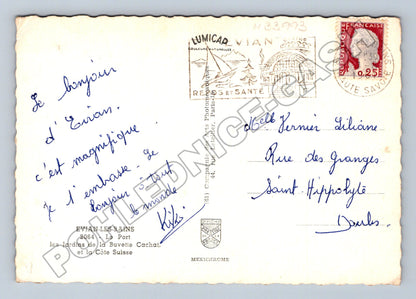 LUMICAP
EVIAN
REPOS ET SANTÉ
REPUBLIQUE FRANÇAISE
0,25
HAUTE SAVOIE
Le bonjour
d'Evian.
c'est magnifique.
Je t'embrasse. Le
bonjour à tout
le monde
Kiki
Mlle Vernier Liliane
Rue des Granges
Saint Hippolyte
Doubs
EVIAN-LES-BAINS
2064 - Le Port
les Jardins de la Buvette Cachat
et la Côte Suisse
MEXICHROME
POHLEDNICE-GASH